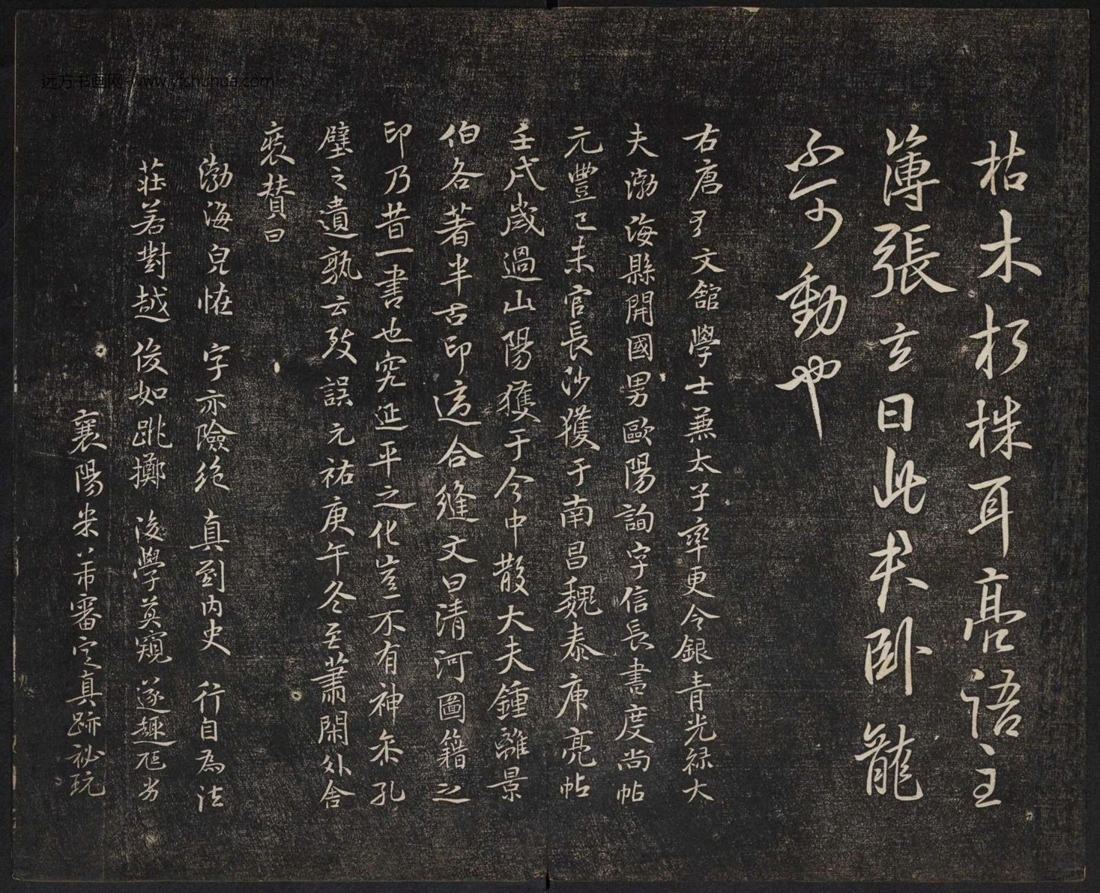 枯木朽株耳亮語主
簿張玄曰此夫卧龍
不可動也
右唐弘文館學士兼太子率更令銀青光祿大
夫渤海縣開國男歐陽詢字信長書度尚帖
元豐己未官長沙獲于南昌魏泰庾亮帖
壬戌歲過山陽獲于今中散大夫鍾離景
伯各著半古印這合縫文曰清河圖籍之
印乃昔一書也究延平之化豈不有神尒孔
壁之遺孰云致誤元祐庚午冬至蕭閑外舍
裝贊曰
渤海皃恠 字亦險絕 真到內史 行自為法
莊若對越 俊如跳擲 後學莫窺 遂趣尫劣
襄陽米芾審定真跡祕玩
远方书画网 www.yfshuhua.com